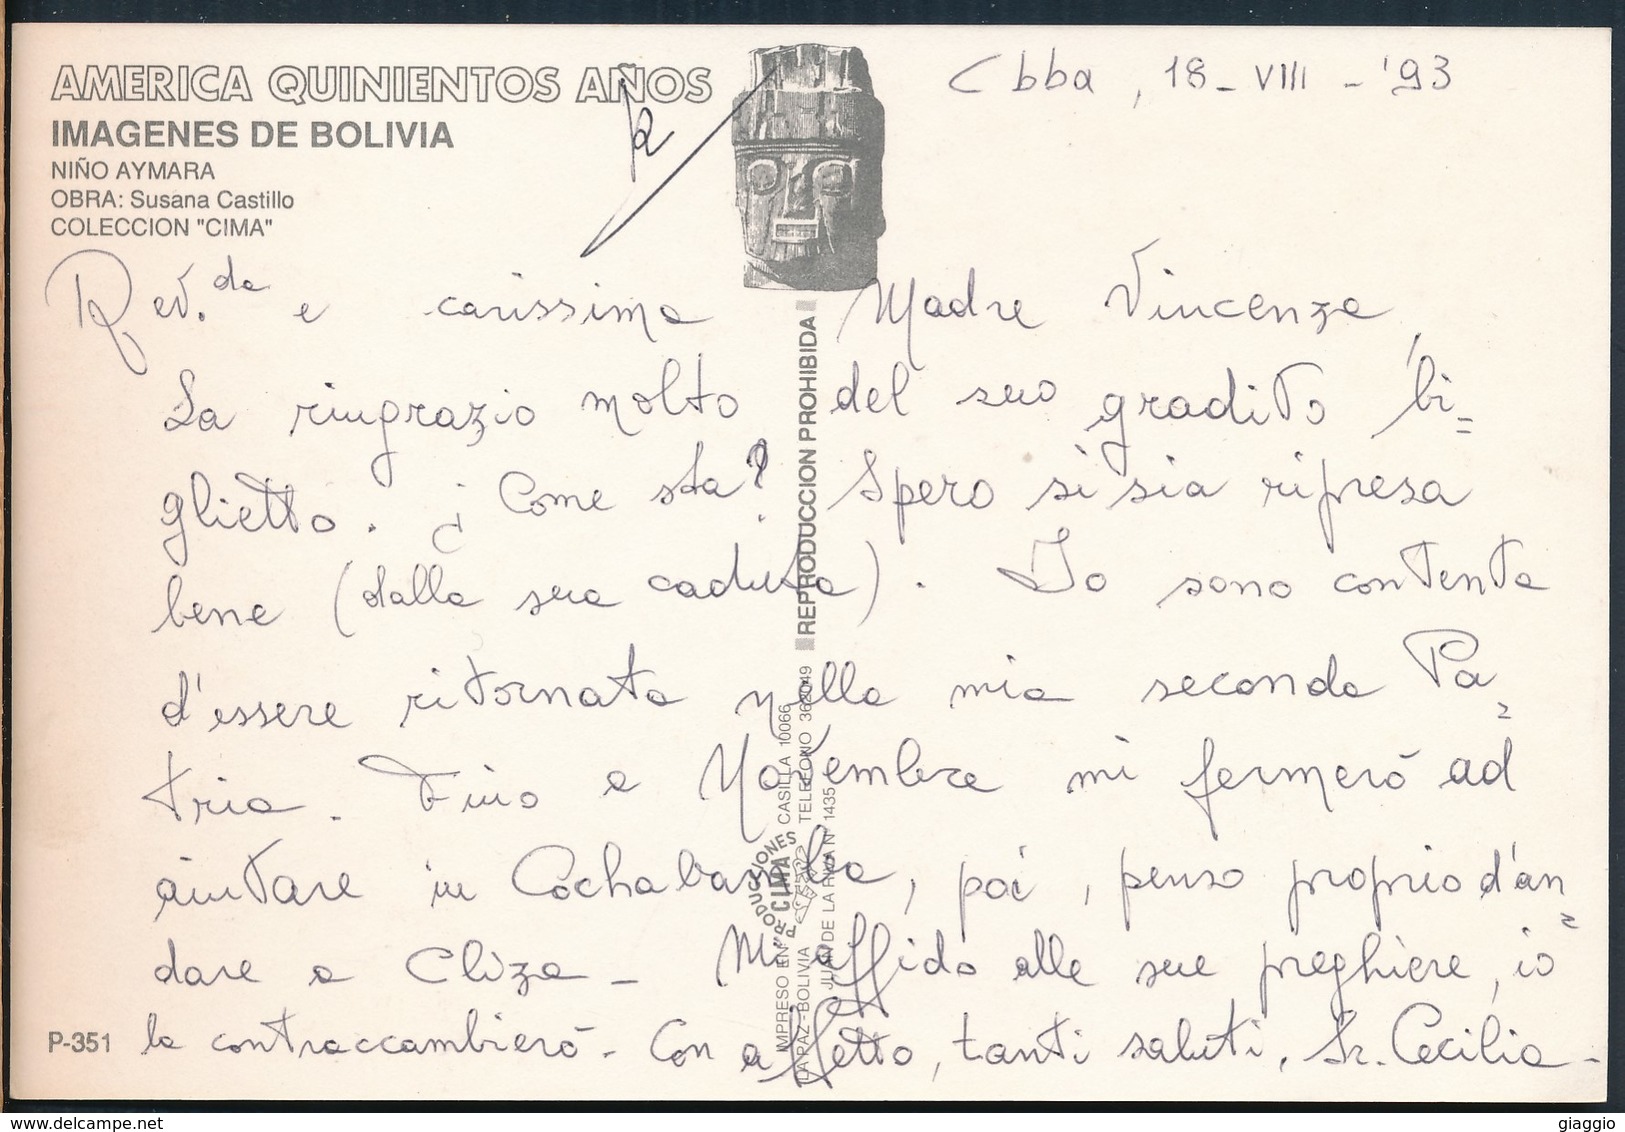 AMERICA QUINIENTOS AÑOS
IMAGENES DE BOLIVIA
NIÑO AYMARA
OBRA: Susana Castillo
COLECCION "CIMA"
Cbba, 18-VIII-'93
Rev.da e carissima Madre Vincenza,
La ringrazio molto del suo gradito bi=
glietto. ¿Come sta? Spero si sia ripresa
bene (dalla sua caduta). Io sono contenta
d'essere ritornata nella mia seconda Pa=
tria. Fino a Novembre mi fermerò ad
aiutare in Cochabamba, poi, penso proprio d'an=
dare a Cliza - Mi affido alle sue preghiere, io
la contraccambierò - Con affetto, tanti saluti, Sr. Cecilia -
P-351
REPRODUCCION PROHIBIDA
IMPRESO EN PRODUCCIONES CIMA CASILLA 10066
LA PAZ - BOLIVIA TELEFONO 362049
JUAN DE LA RIVA Nº 1435
giaggio